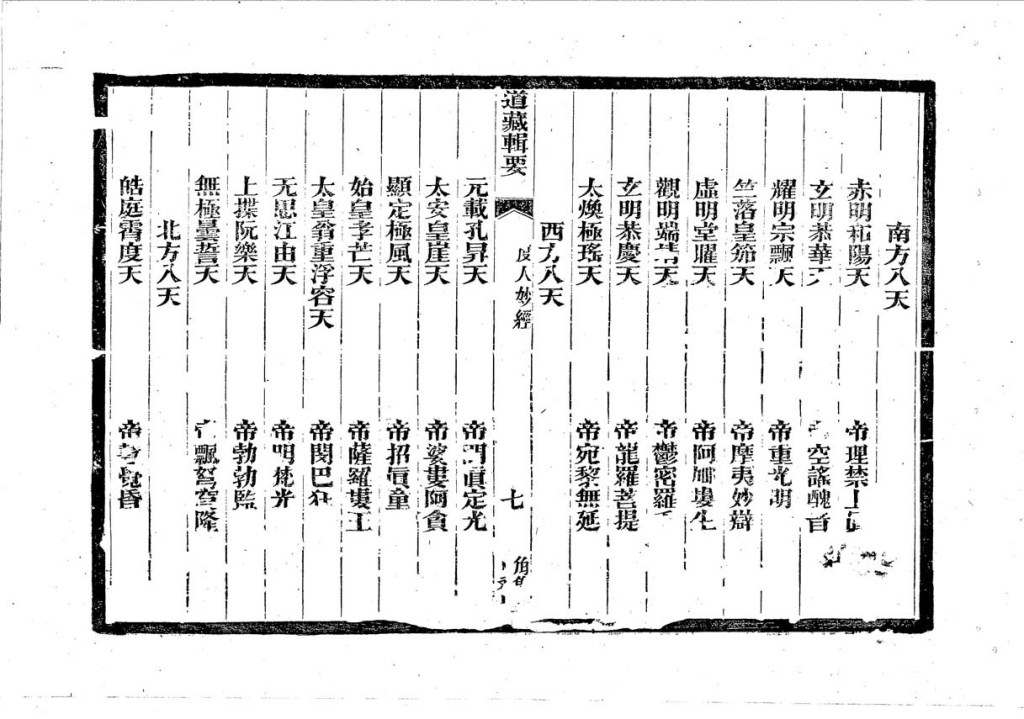 南方八天
赤明和陽天 帝理禁上
玄明恭華 空謠醜音
耀明宗飄天 帝重光明
竺落皇笳天 帝摩夷妙辯
虛明堂曜天 帝阿婁生
觀明端天 帝鬱密羅
玄明恭慶天 帝龍羅菩提
太煥極瑤天 帝宛黎無延
西方八天
道藏輯要 度人妙經 七 角集
元載孔昇天 帝真定光
太安皇崖天 帝婆婁阿貪
顯定極風天 帝招真童
始皇孝芒天 帝薩羅婁王
太皇翁重浮容天 帝閔巴狂
无思江由天 帝明梵光
上揲阮樂天 帝勃勃監
無極曇誓天 帝飄弩穹隆
北方八天
皓庭霄度天 帝覺昏